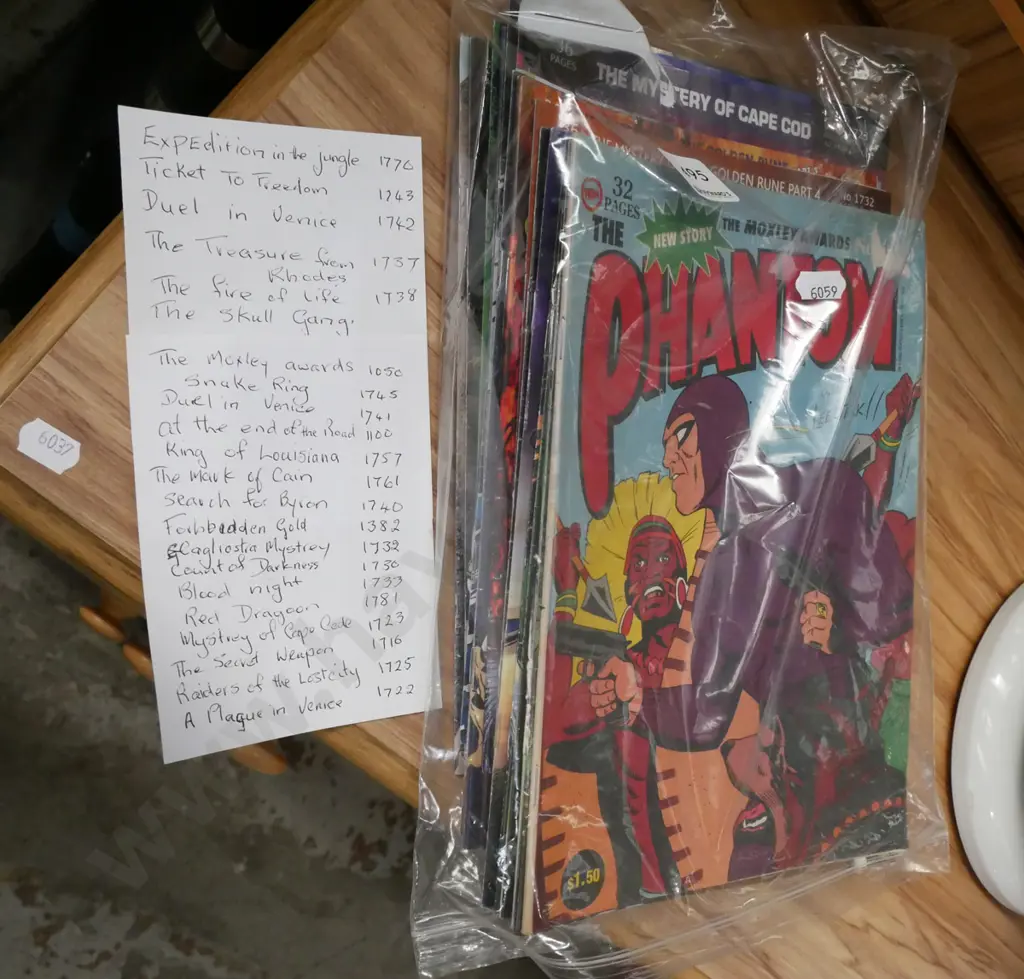 ExpEdition in the jungle 1770
Ticket To Freedom 1743
Duel in Venice 1742
The Treasure from 1737
Rhodes
The fire of life 1738
The Skull Gang.
The Moxley awards 1050
Snake Ring 1745
Duel in Venice 1741
at the end of the Road 1100
King of Louisiana 1757
The Mark of Cain 1761
Search for Byron 1740
Forbbedden Gold 1382
Cagliostra Mystrey 1732
Count of Darkness 1730
Blood night 1733
Red Dragoon 1781
Mystrey of Cape Code 1723
The Secret Weapon 1716
Raiders of the Lost city 1725
A Plague in Venice 1722
6037
36
PAGES
THE MYSTERY OF CAPE COD
GOLDEN RUNE PART 4 No 1732
195
32
PAGES
THE
NEW STORY
THE MOXLEY AWARDS
PHANTOM
6059
$1.50